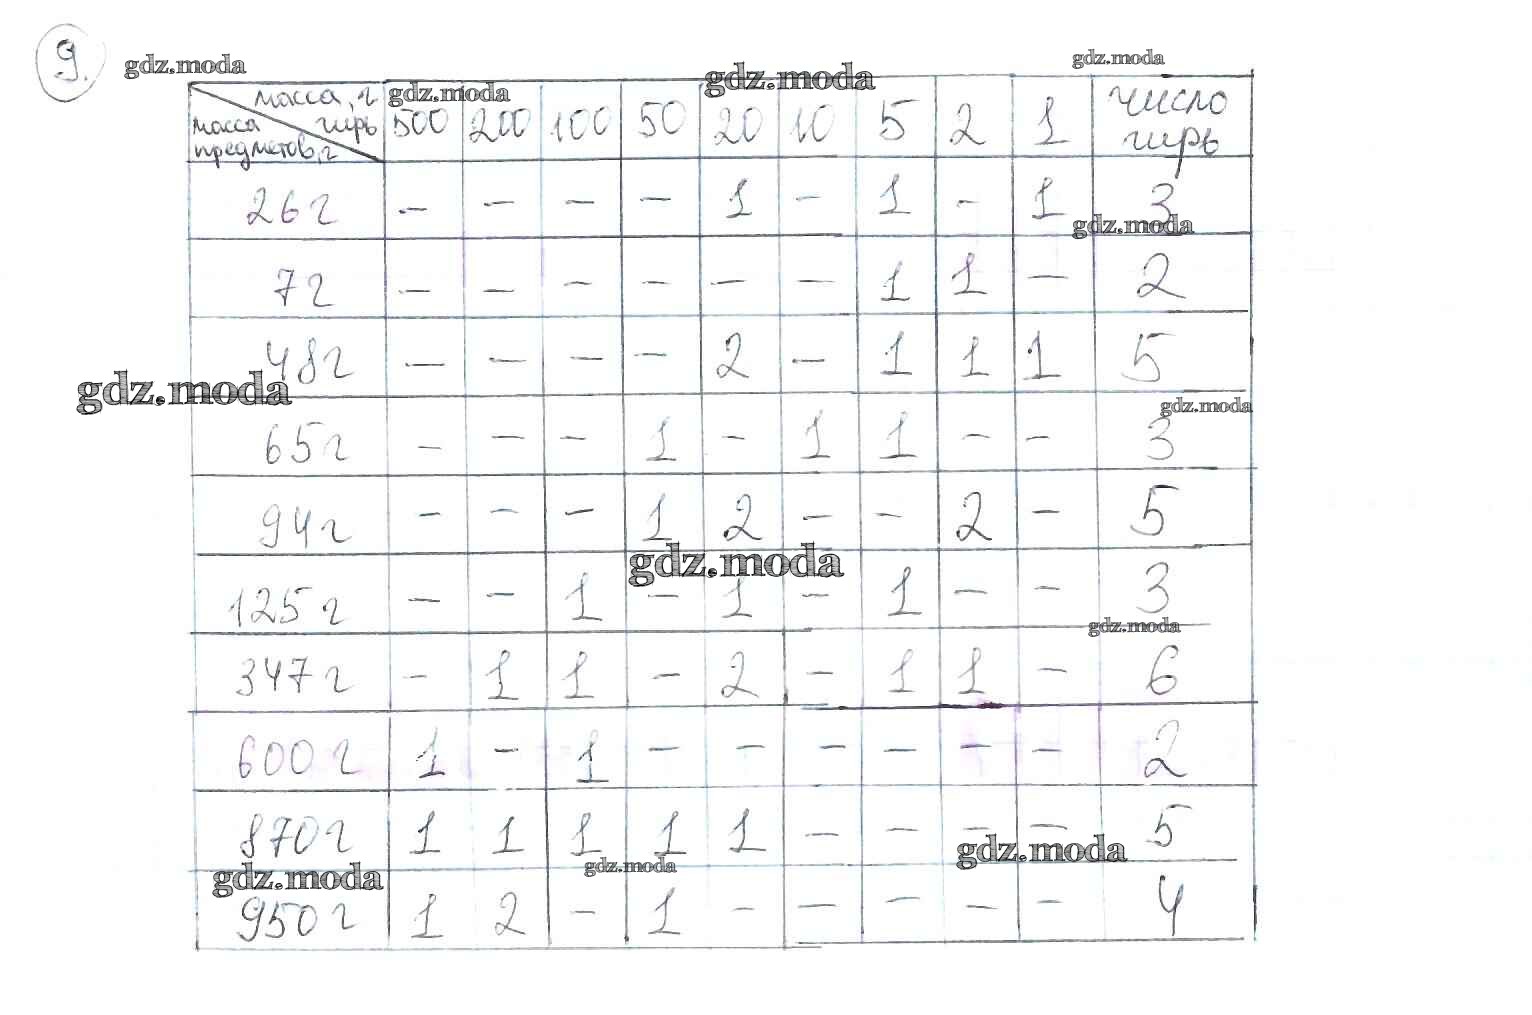 9.
gdz.moda
gdz.moda
gdz.moda
gdz.moda
масса, г гирь
масса предметов, г
500 200 100 50 20 10 5 2 1 число гирь
26 г – – – – 1 – 1 – 1 3
gdz.moda
7 г – – – – – – 1 1 – 2
48 г – – – – 2 – 1 1 1 5
gdz.moda
gdz.moda
65 г – – – 1 – 1 1 – – 3
94 г – – – 1 2 – – 2 – 5
gdz.moda
125 г – – 1 – 1 – 1 – – 3
gdz.moda
347 г – 1 1 – 2 – 1 1 – 6
600 г 1 – 1 – – – – – – 2
870 г 1 1 1 1 1 – – – – 5
gdz.moda
gdz.moda
gdz.moda
950 г 1 2 – 1 – – – – – 4